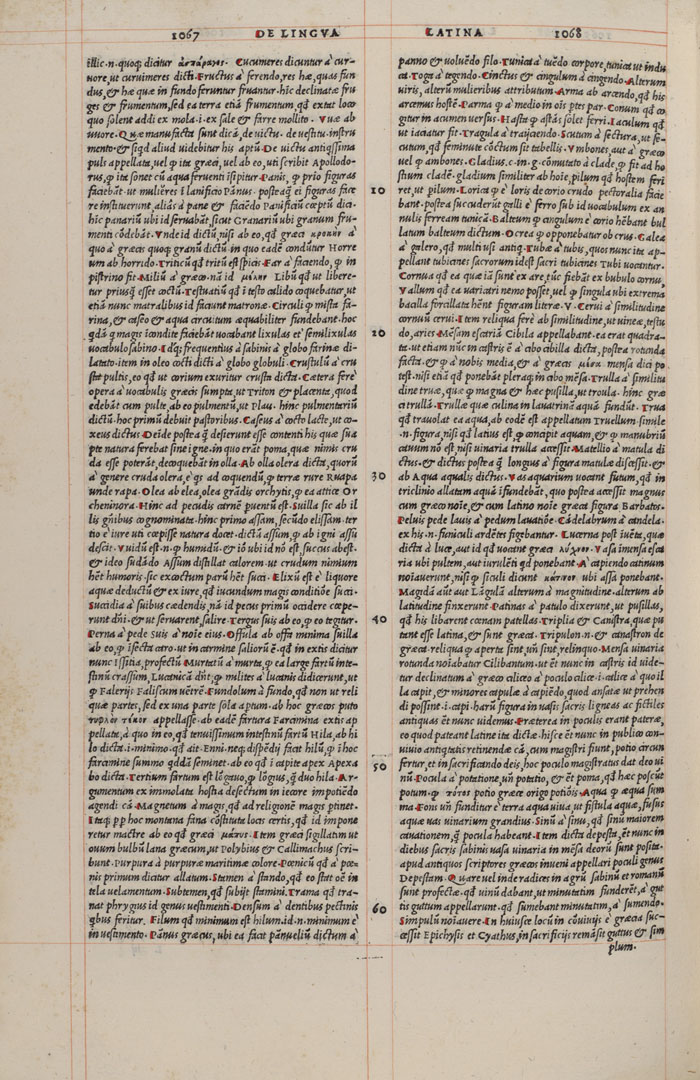 1067 DE LINGVA
illic.n.quoq; dicitur ἀσπάραγος. Cucumeres dicuntur a' cur-
uore, ut curuimeres dicti. Fructus a' ferendo, res hæ, quas fun
dus, & hæ quæ in fundo feruntur fruantur. hinc declinatæ fru
ges & frumentum, sed ea terra etiã frumentum, qđ extat loco
quo solent addi ex mola. i. ex sale & farre mollito. Vuæ ab
uuore. Quæ manufacta sunt dicã, de uictu. de uestitu. instru
mento. & siqđ aliud uidebitur his aptũ. De uictu antiqssima
puls appellata, uel φ ita græci, uel ab eo, uti scribit Apollodo-
rus, φ ita sonet cũ aqua feruenti isipitur. Panis, φ prio figuras
faciebãt. ut mulieres i lanificio Pánus. posteaq̃ ei figuras face
re instituerunt, aliàs a' pane & faciẽdo Panificiũ cœptũ dici.
hic panariũ ubi id seruabãt, sicut Granariũ ubi granum fru-
menti cõdebãt. Vnde id dictũ, nisi ab eo, qđ græci κροκην a'
quo a' græcis quoq; granũ dictũ in quo eadẽ condũtur Horre
um ab horrido. Triticũ qđ tritũ est spicis. Far a' faciendo, φ in
pistrino fit. Miliũ a' græco. nã id μελινη Libũ qđ ut libere-
tur priusq̃ esset coctũ. Testuatiũ qđ i testo calido coquebatur, ut
etiã nunc matralibus id faciunt matronæ. Circuli φ mista fa-
rina, & caseo & aqua circuitum æquabiliter fundebant. hoc
qdã q magis icondite faciebãt uocabant lixulas et semilixulas
uocabulo sabino. Idq; frequentius a' sabinis a' globo farinæ di-
latato. item in oleo cocti dicti a' globo globuli. Crustulũ a' cru
sta pultis, eo qđ ut corium exuritur crusta dicta. Cætera fere
opera a' uocabulis græcis sumpta, ut Triton & placenta, quod
edebãt cum pulte, ab eo pulmentũ, ut Plau. hinc pulmentariũ
dictũ. hoc primũ debuit pastoribus. Caseus a' cocto lacte, ut co-
xeus dictus Deĩde postea q̃ desierunt esse contenti his quæ sua
pte natura ferebat sine igne. in quo erãt poma, quæ nimis cru
da esse poterãt, decoquebãt in olla. Ab olla olera dicta, quorũ
a' genere cruda olera, e' qs ad coquendũ, φ terra rure Ruapa
unde rapa. Olea ab elea, olea grãdis orchytis, φ ea attice Or
cheninora. Hinc ad pecudis carnẽ puentũ est. Suilla sic ab il
lis gñibus cognominata. hinc primo assam, secũdo elissam. ter
tio e' iure uti cœpisse natura docet. dictũ assum, φ ab igni assũ
descit. Vuidũ est.n.φ humidũ. & iõ ubi id nõ est, succus abest.
& ideo sudãdo Assum distillat calorem. ut crudum nimium
hẽt humoris. sic excoctum parũ hẽt succi. Elixũ est e' liquore
aquæ deductũ & ex iure, qđ iucundum magis conditiõe succi.
Sucidia a' suibus cædendis, nã id pecus primũ occidere cœpe-
runt dñi. & ut seruarent, salire. Tergus suis ab eo, φ eo tegitur.
Perna a' pede suis a' noĩe eius. Offula ab offa minima suilla
ab eo, φ isecta caro. ut in carmine saliorũ ẽ. qđ in extis dicitur
nunc Issitia, profectũ Murtatũ a' murta, φ ea large fartũ inte-
stinũ crassum, Lucanicã dñt, φ milites a' lucanis didicerunt, ut
φ Falerijs Faliscum uẽtrẽ. Fundolum a' fundo, qđ non ut reli
quæ partes, sed ex una parte sola aptum. ab hoc græcos puto
τυφλον τοκον appellasse. ab eadẽ fartura Farcimina extis ap
pellata, a' quo in eo, qđ tenuissimum intestinũ fartũ Hila, ab hi
lo dicta. i. minimo. qđ ait. Enni. neq; dispẽdij facit hilũ, φ i hoc
farcimine summo qddã seminet. ab eo qđ i capite apex Apexa
bo dicta. Tertium fartum est lõgauo, φ lõgus, q̃ duo hila. Ar-
gumentum ex immolata hostia desectum in iecore impotẽdo
agendi cã. Magnetum a' magis, qđ ad religionẽ magis ptinet.
Itaq; pp hoc montana fana cõstituta locis certis, qđ id impone
retur mactre ab eo qđ græci μαιους. Item græci sigillatim ut
ouum bulbũ lana græcum, ut Polybius & Callimachus scri-
bunt. Purpura a' purpuræ maritimæ colore. Pœnicũ qđ a' pœ-
nis primum dicitur allatum. Stamen a' stando, qđ eo stat oẽ in
tela uelamentum. Subtemen, qđ subijt stamini. Trama qđ tra-
nat phrygius id genus uestimenti. Densum a' dentibus pectinis
qbus feritur. Filum qđ minimum est hilum. id.n.minimum e'
in uestimento. Pánus græcus, ubi ea facit pãnueliũ dictum a'
10
20
30
40
50
60
LATINA 1068
panno & uoluẽdo filo. Tunica a' tuẽdo corpore, tunica ut indu
ca. Toga a' tegendo. Cinctus & cingulum a' cingendo. Alterum
uiris, alterũ mulieribus attributum. Arma ab arcendo, qđ his
arcemus hostẽ. Parma φ a' medio in oĩs ptes par. Conum qđ co
gitur in acumen uersus. Hasta φ astãs solet ferri. Iaculum qđ
ut iaciatur fit. Tragula a' traijciendo. Scutum a' sectura, ut se-
cutum, qđ feminute cõctum sit tabellis. Vmbones, aut a' græco
uel φ ambones. Gladius.c.in.g.cõmutato a' clade, φ fit ad ho
stium cladẽ. gladium similiter ab hoie, pilum qđ hostem feri
ret, ut pilum. Lorica φ e' loris de corio crudo pectoralia facie
bant. postea succuderũt gallí e' ferro sub id uocabulum ex an
nulis ferream tunicã. Balteum φ cingulum e' corio hẽbant bul
latum balteum dictum. Ocrea φ opponebatur ob crus. Galea
a' galero, qđ multi usi antiq. Tubæ a' tubis, quos nunc ite ap-
pellant tubicines sacrorum idest sacri tubicines Tubi uocantur.
Cornua qđ ea quæ iã sunt ex ære, tũc fiebãt ex bubulo cornu.
Vallum qđ ea uariæri nemo posset, uel φ singula ubi extrema
bacilla forcillata hẽnt figuram literæ.V. Cerui a' similitudine
cornuũ cerui. Item reliqua ferè ab similitudine, ut uineæ, testu
do, aries. Mẽsam escariã Cibilla appellabant. ea erat quadra-
ta. ut etiam nũc in castris ẽ a' cibo cibilla dicta, postea rotunda
facta. & φ a' nobis media, & a' græcis μεσα mensa dici po
test. nisi etiã qđ ponebãt pleraq; in cibo mẽsa. Trulla a' similitu
dine truæ, quæ φ magna & hæc pusilla, ut troula. hinc græ
ci trullã. Trullæ quæ culina in lauatrinã aquã fundũt. Trua
qđ trauolat ea aqua, ab eodẽ est appellatum Truellum simile
.n. figura, nisi qđ latius est φ concipit aquam, & φ manubriũ
cauum nõ est, nisi uinaria trulla accessit. Matellio a' matula di
ctus. & dictus postea q̃ longius a' figura matulæ discessit. &
ab Aqua aqualis dictus. Vas aquarium uocant futum, qđ in
triclinio allatam aquã ifundebãt, quo postea accessit magnus
cum græco noĩe, & cum latino noie græci figura Barbatos.
Peluis pede lauis a' pedum lauatiõe. Cãdelabrum a' candela.
ex his.n.funiculi ardẽtes figebantur. Lucerna post iuẽta, quæ
dicta a' luce, aut id qđ uocant græci λυχνον. Vasa imensa esca
ria ubi pultem, aut iurulẽti qđ ponebant. A' capiendo catinum
noĩauerunt, nisi φ siculi dicunt κατινον ubi assa ponebant.
Magidã aũt aut Lãgulã alterum a' magnitudine. alterum ab
latitudine finxerunt. Patinas a' patulo dixerunt, ut pusillas,
qđ his libarent cœnam patellas. Triplia & Canistra, quæ pu
tant esse latina, & sunt græca. Tripulon.n.& canastron de
græca. reliqua φ aperte sint, ut sint, relinquo. Mensa uinaria
rotunda noĩabatur Cilibantum. ut ẽt nunc in castris id uide-
tur declinatum a' græco caliceo a' poculo calice. i. calice a' quo il
la capit, & minores capulæ a' capiẽdo, quod ansatæ ut prehen
di possint. i. capi. harũ figura in uasis sacris ligneas ac fictiles
antiquas ẽt nunc uidemus. Præterea in poculis erant pateræ,
eo quod pateant latine ita dictæ. hisce ẽt nunc in publico con-
uiuio antiquitatis retinendæ cã, cum magistri fiunt, potio circun
fertur, et in sacrificando deis, hoc poculo magistratus dat deo ui
nũ. Pocula a' potatione, uñ potatio, & ẽt poma, qđ hæc poscũt
potum. φ τοτος potio græce origo potiõis. Aqua φ æqua sum
ma. Fons uñ funditur e' terra aqua uiua, ut fistula aquæ, fusus
aquæ uas uinarium grandius. Sinũ a' sinu, qđ sinũ maiorem
cauationem, q̃ pocula habeant. Item dicta depesta, ẽt nunc in
diebus sacris sabinis uasa uinaria in mẽsa deorũ sunt posita.
apud antiquos scriptores græcos inueni appellari poculi genus
Depestam. Quare uel inde radices in agrũ sabinũ et romanũ
sunt profectæ. qđ uinũ dabant, ut minutatim funderẽt, a' gut
tis guttum appellarunt. qđ sumebant minutatim, a' sumendo.
Simpulũ noĩauere. In huiusce locũ in cõuiuijs e' græcia suc-
cessit Epichysis et Cyathus, in sacrificijs remãsit guttus & sim
plum.